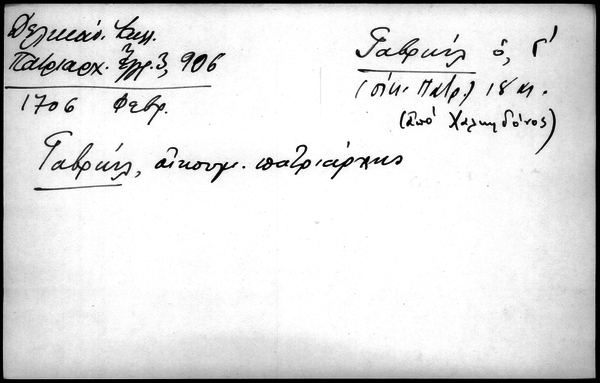 Δελικάν. Καλλ.
Πατριαρχ. Ἔγγρ. 3, 906
1706 Φεβρ.
Γαβριήλ ὁ, Γ΄
(οἰκ. Πατρ.) 18 αι.
(ἀπό Χαλκηδόνος)
Γαβριήλ, οἰκουμ. πατριάρχης